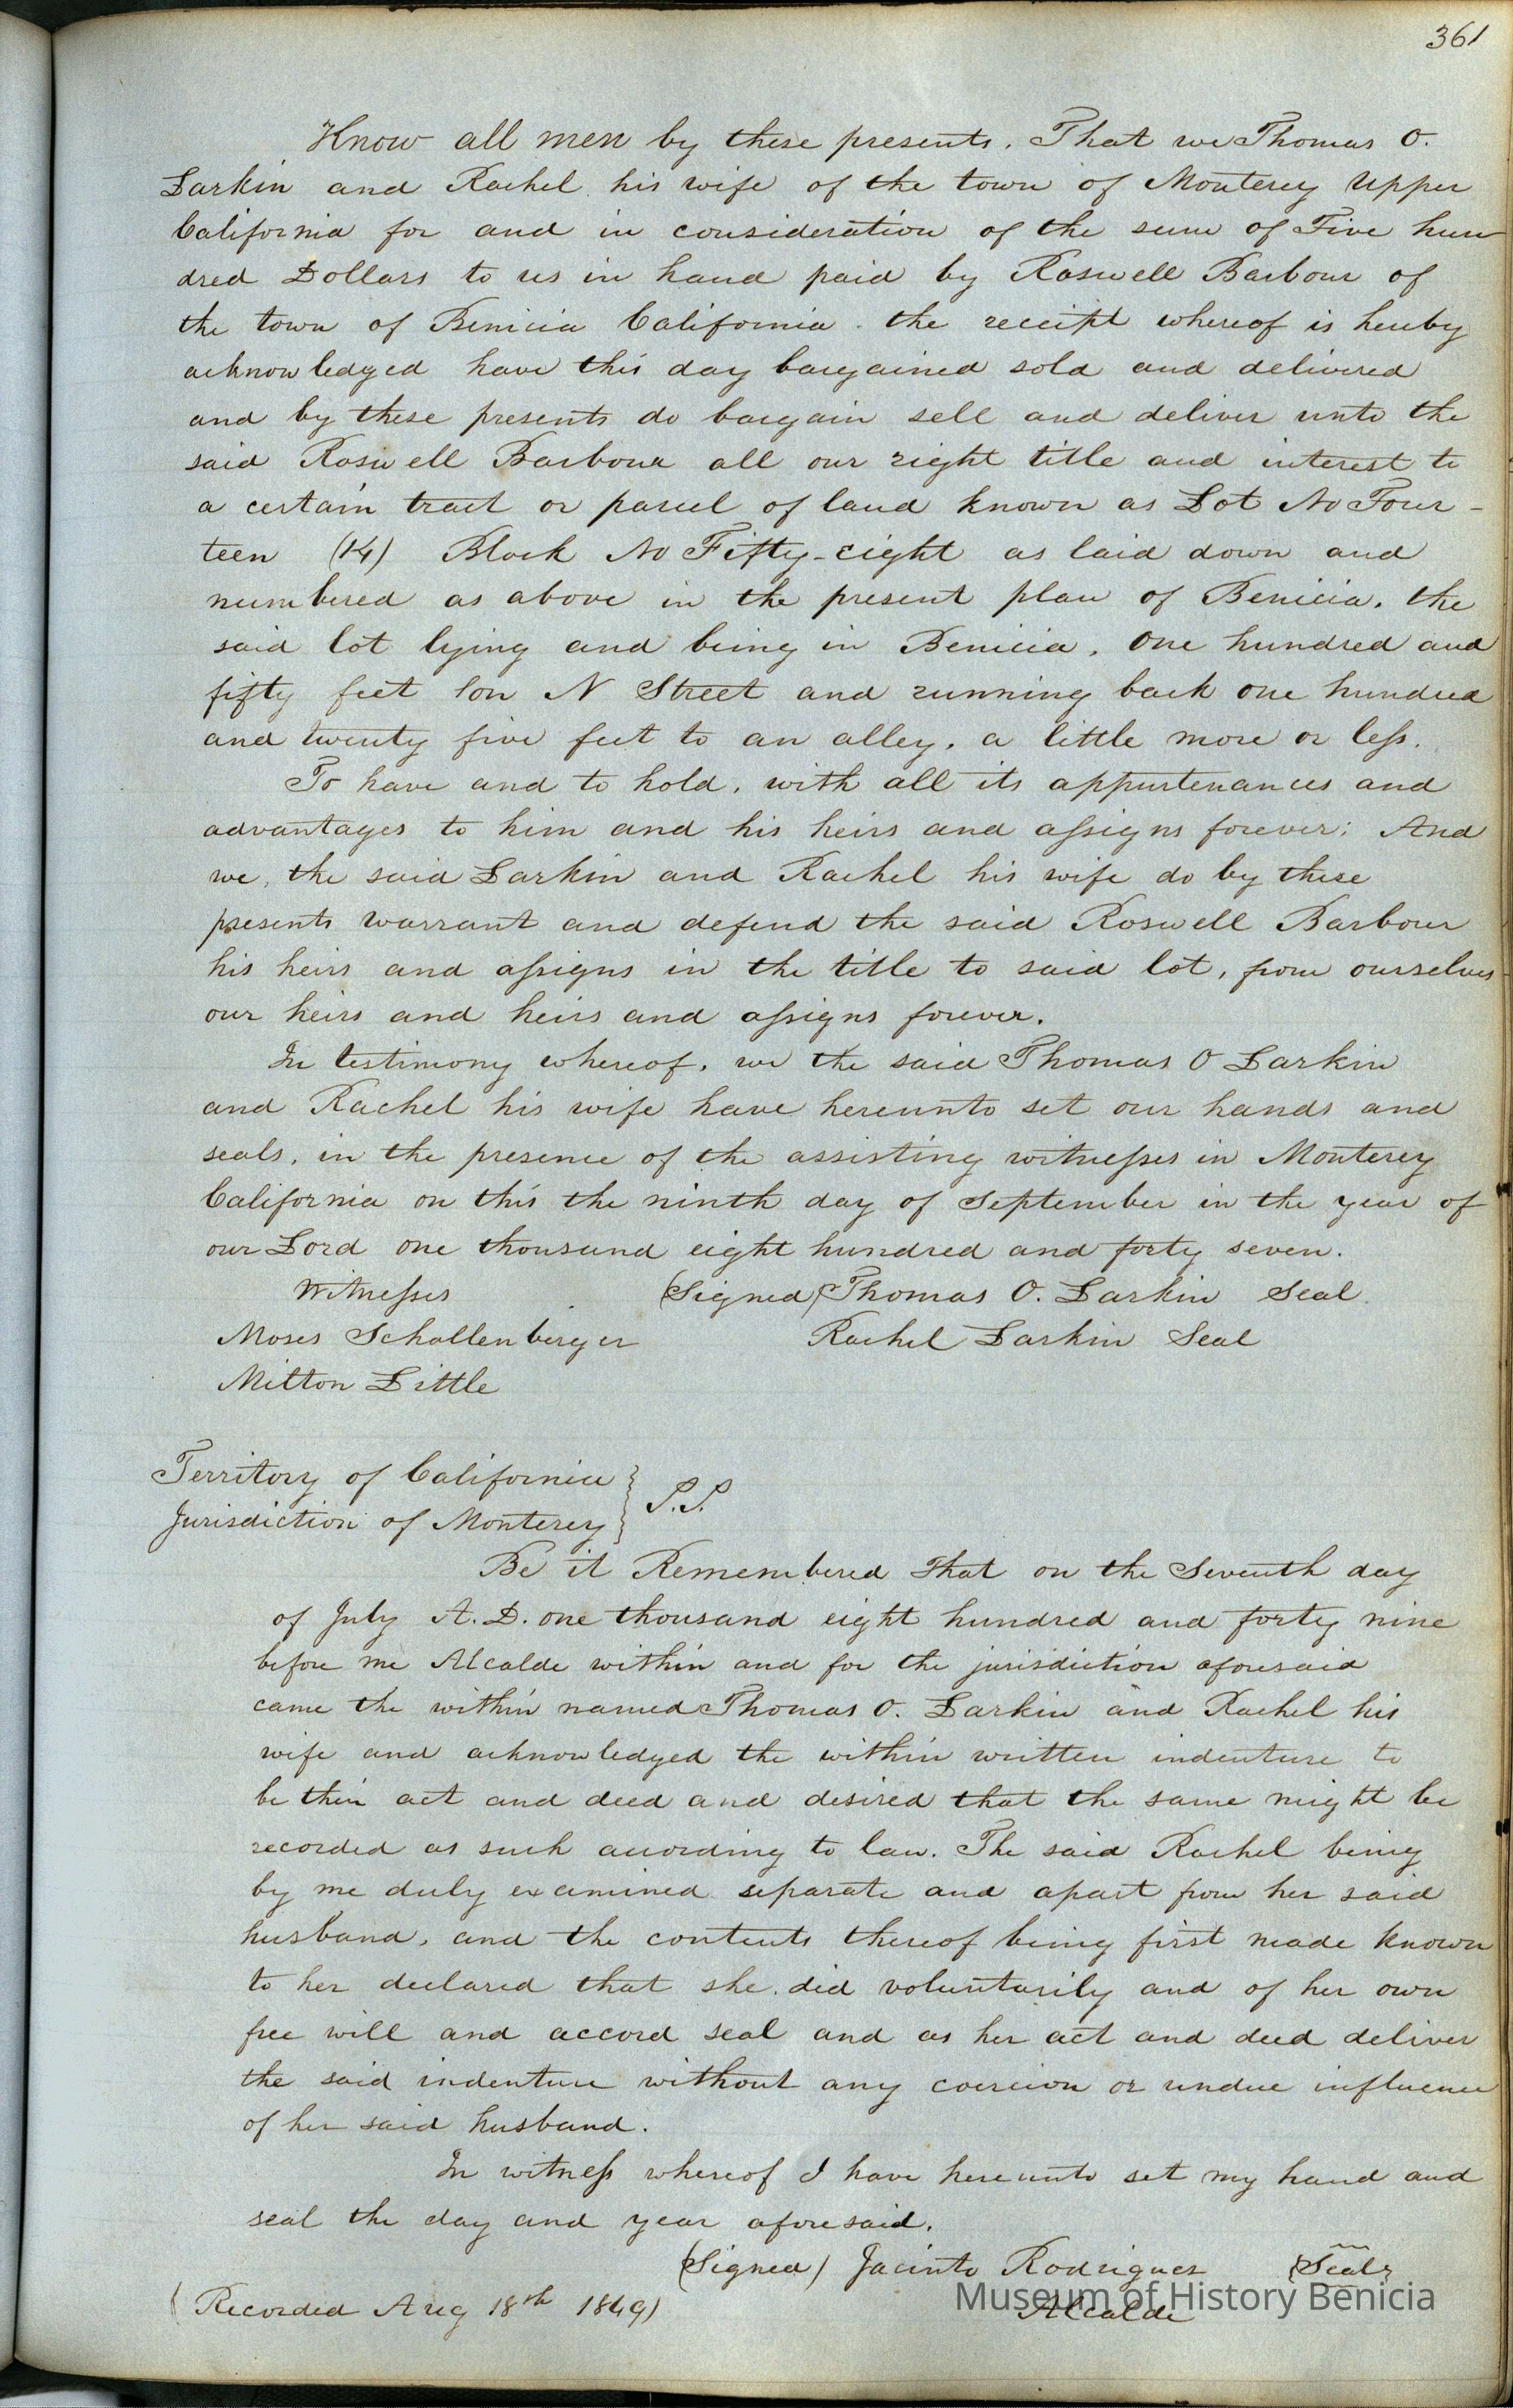 361
Know all men by these presents. That we Thomas O.
Larkin and Rachel his wife of the town of Monterey Upper
California for and in consideration of the sum of Five hun
dred Dollars to us in hand paid by Roswell Barbour of
the town of Benicia California. the receipt whereof is hereby
acknowledged have this day bargained sold and delivered
and by these presents do bargain sell and deliver unto the
said Roswell Barbour all our right title and interest to
a certain tract or parcel of land known as Lot No Four-
teen (14) Block No Fifty-eight as laid down and
numbered as above in the present plan of Benicia. the
said lot lying and being in Benicia. One hundred and
fifty feet on N Street and running back one hundred
and twenty five feet to an alley. a little more or less.
To have and to hold. with all its appurtenances and
advantages to him and his heirs and assigns forever; And
we, the said Larkin and Rachel his wife do by these
presents warrant and defend the said Roswell Barbour
his heirs and assigns in the title to said lot, from ourselves
our heirs and heirs and assigns forever.
In testimony whereof. we the said Thomas O Larkin
and Rachel his wife have hereunto set our hands and
seals, in the presence of the assisting witnesses in Monterey
California on this the ninth day of September in the year of
our Lord one thousand eight hundred and forty seven.
Witnesses (Signed) Thomas O. Larkin Seal
Moses Schallenberger Rachel Larkin Seal
Milton Little
Territory of California } S.S.
Jurisdiction of Monterey
Be it Remembered that on the Seventh day
of July A.D. one thousand eight hundred and forty nine
before me Alcalde within and for the jurisdiction aforesaid
came the within named Thomas O. Larkin and Rachel his
wife and acknowledged the within written indenture to
be their act and deed and desired that the same might be
recorded as such according to law. The said Rachel being
by me duly examined separate and apart from her said
husband, and the contents thereof being first made known
to her declared that she did voluntarily and of her own
free will and accord seal and as her act and deed deliver
the said indenture without any coercion or undue influence
of her said husband.
In witness whereof I have hereunto set my hand and
seal the day and year aforesaid.
(Signed) Jacinto Rodrigues (Seal)
(Recorded Aug 18th 1849) Alcalde
Museum of History Benicia